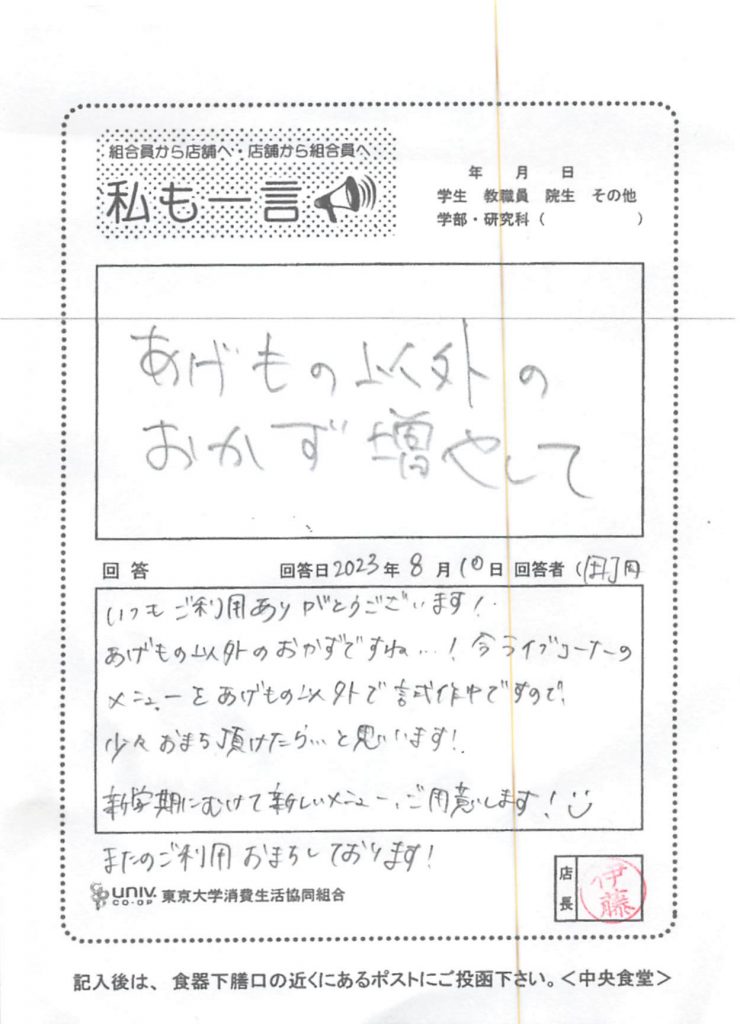 組合員から店舗へ・店舗から組合員へ
私も一言
年 月 日
学生 教職員 院生 その他
学部・研究科（ ）
あげもの以外の
おかず増やして
回答 回答日2023年8月10日 回答者（
いつもご利用ありがとうございます！
あげもの以外のおかずですね…！今ライブコーナーの
メニューをあげもの以外で試作中ですので、
少々おまち頂けたら…と思います！
新学期にむけて新しいメニュー、ご用意します！
またのご利用おまちしております！
UNIV. CO-OP 東京大学消費生活協同組合
店長 伊藤
記入後は、食器下膳口の近くにあるポストにご投函下さい。＜中央食堂＞